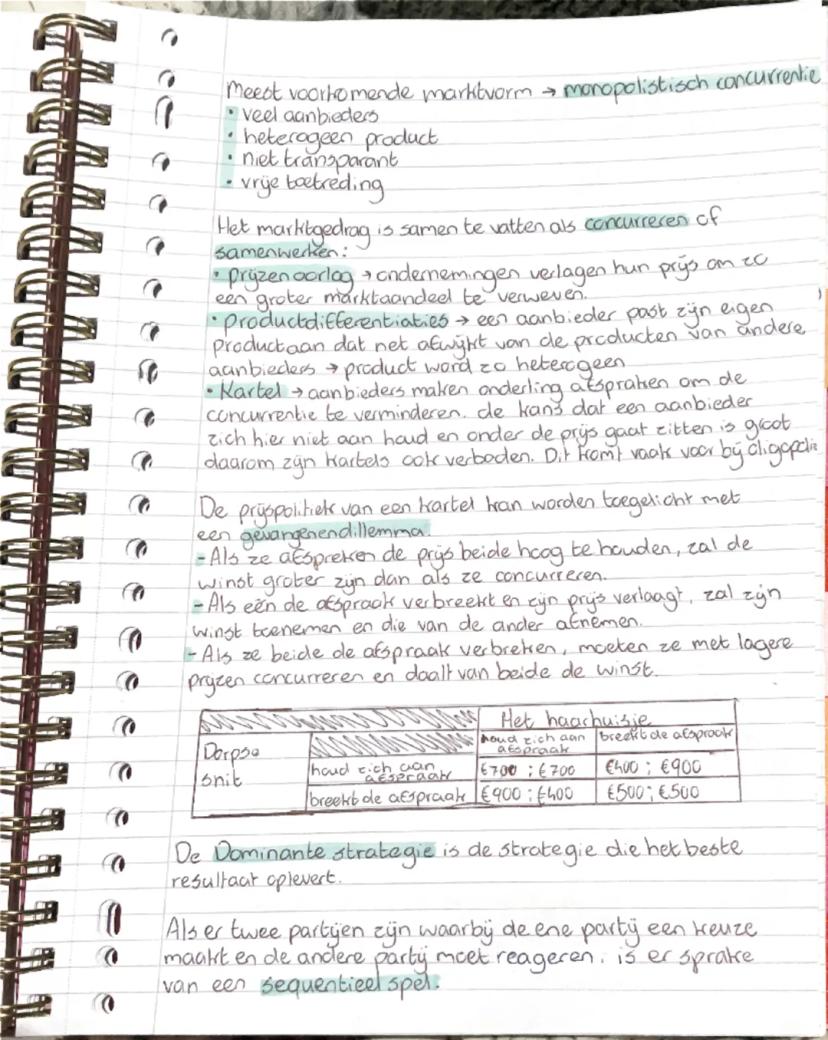 Meest voorkomende marktvorm → monopolistisch concurrentie
• veel aanbieders
• heterogeen product
• niet transparant
• vrije toetreding
Het marktgedrag is samen te vatten als concurreren of
samenwerken:
• Prijzenoorlog → ondernemingen verlagen hun prijs om zo
een groter marktaandeel te verweven.
• Productdifferentiaties → een aanbieder past zijn eigen
product aan dat net afwijkt van de producten van andere
aanbieders → product word zo heterogeen
• Kartel → aanbieders maken onderling afspraken om de
concurrentie te verminderen. de kans dat een aanbieder
zich hier niet aan houd en onder de prijs gaat zitten is groot
daarom zijn kartels ook verboden. Dit komt vaak voor bij oligopolie
De prijspolitiek van een kartel kan worden toegelicht met
een gevangenendillemma.
- Als ze afspreken de prijs beide hoog te houden, zal de
winst groter zijn dan als ze concurreren.
- Als eén de afspraak verbreekt en zijn prijs verlaagt, zal zijn
winst toenemen en die van de ander afnemen.
- Als ze beide de afspraak verbreken, moeten ze met lagere
prijzen concurreren en daalt van beide de winst.
Het haarhuisje
houd zich aan afspraak breekt de afspraak
Dorpse snit
houd zich aan afspraak €700 ; €700 €400 ; €900
breekt de afspraak €900 ; €400 €500 ; €500
De Dominante strategie is de strategie die het beste
resultaat oplevert.
Als er twee partijen zijn waarbij de ene partij een keuze
maakt en de andere partij moet reageren, is er sprake
van een sequentieel spel.